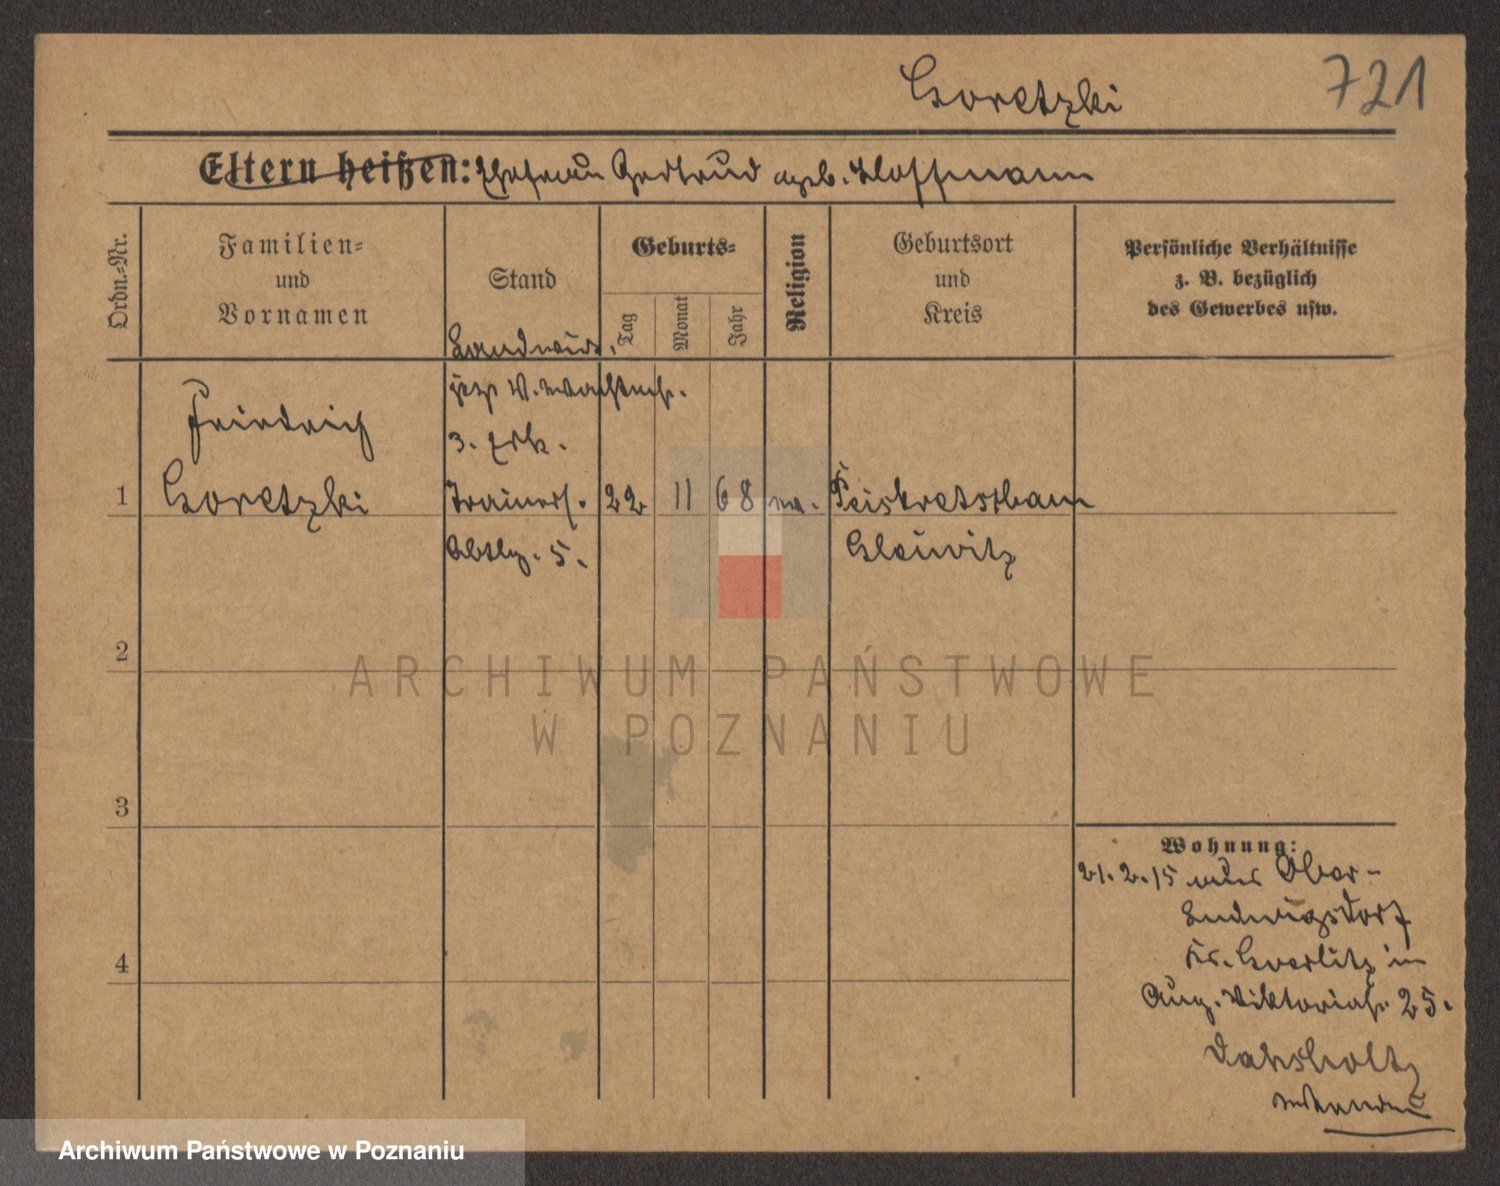 Goretzki
721
Eltern heißen: Ehefrau Gertrud geb. Hoffmann
Ordn.=Nr.
Familien=
und
Vornamen
Stand
Geburts=
Tag
Monat
Jahr
Religion
Geburtsort
und
Kreis
Persönliche Verhältnisse
z. B. bezüglich
des Gewerbes usw.
Landwirt.
jetzt V. Wachtm.
Friedrich
3. Ers.
1 Goretzki Trainers. 22 11 68
Abtlg. 5. Gleiwitz
2
3
4
Wohnung:
21. 2. 15 aus Ober-
Ludwigsdorf
Kr. Goerlitz in
Aug. Viktoriast. 25.
ARCHIWUM PAŃSTWOWE
W POZNANIU
Archiwum Państwowe w Poznaniu